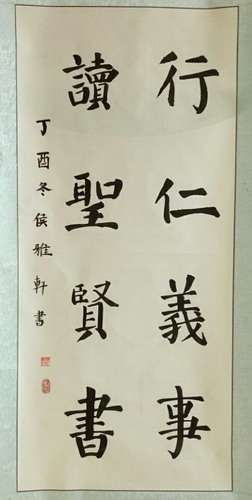 行仁義事
讀聖賢書
丁酉冬侯雅軒書